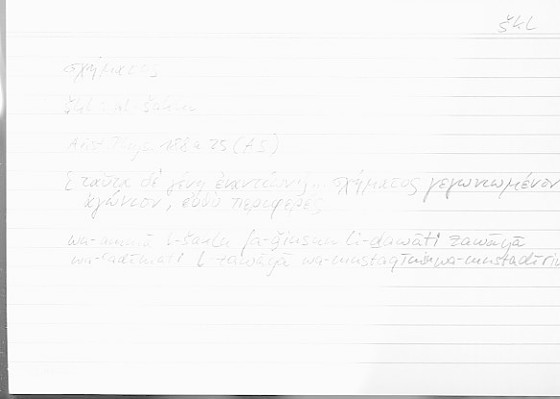 škl
σχήματος
škl: al-šaklu
Arist. Phys. 188a 25 (A5)
ταῦτα δὲ γένη ἐναντίων; ... σχήματος γεγωνιωμένον
ἀγώνιον, εὐθὺ περιφερές
wa-ammā l-šaklu fa-ǧinsun li-dawāti zawāyā
wa-ʿadīmati l-zawāyā wa-mustaqīmin wa-mustadīrin